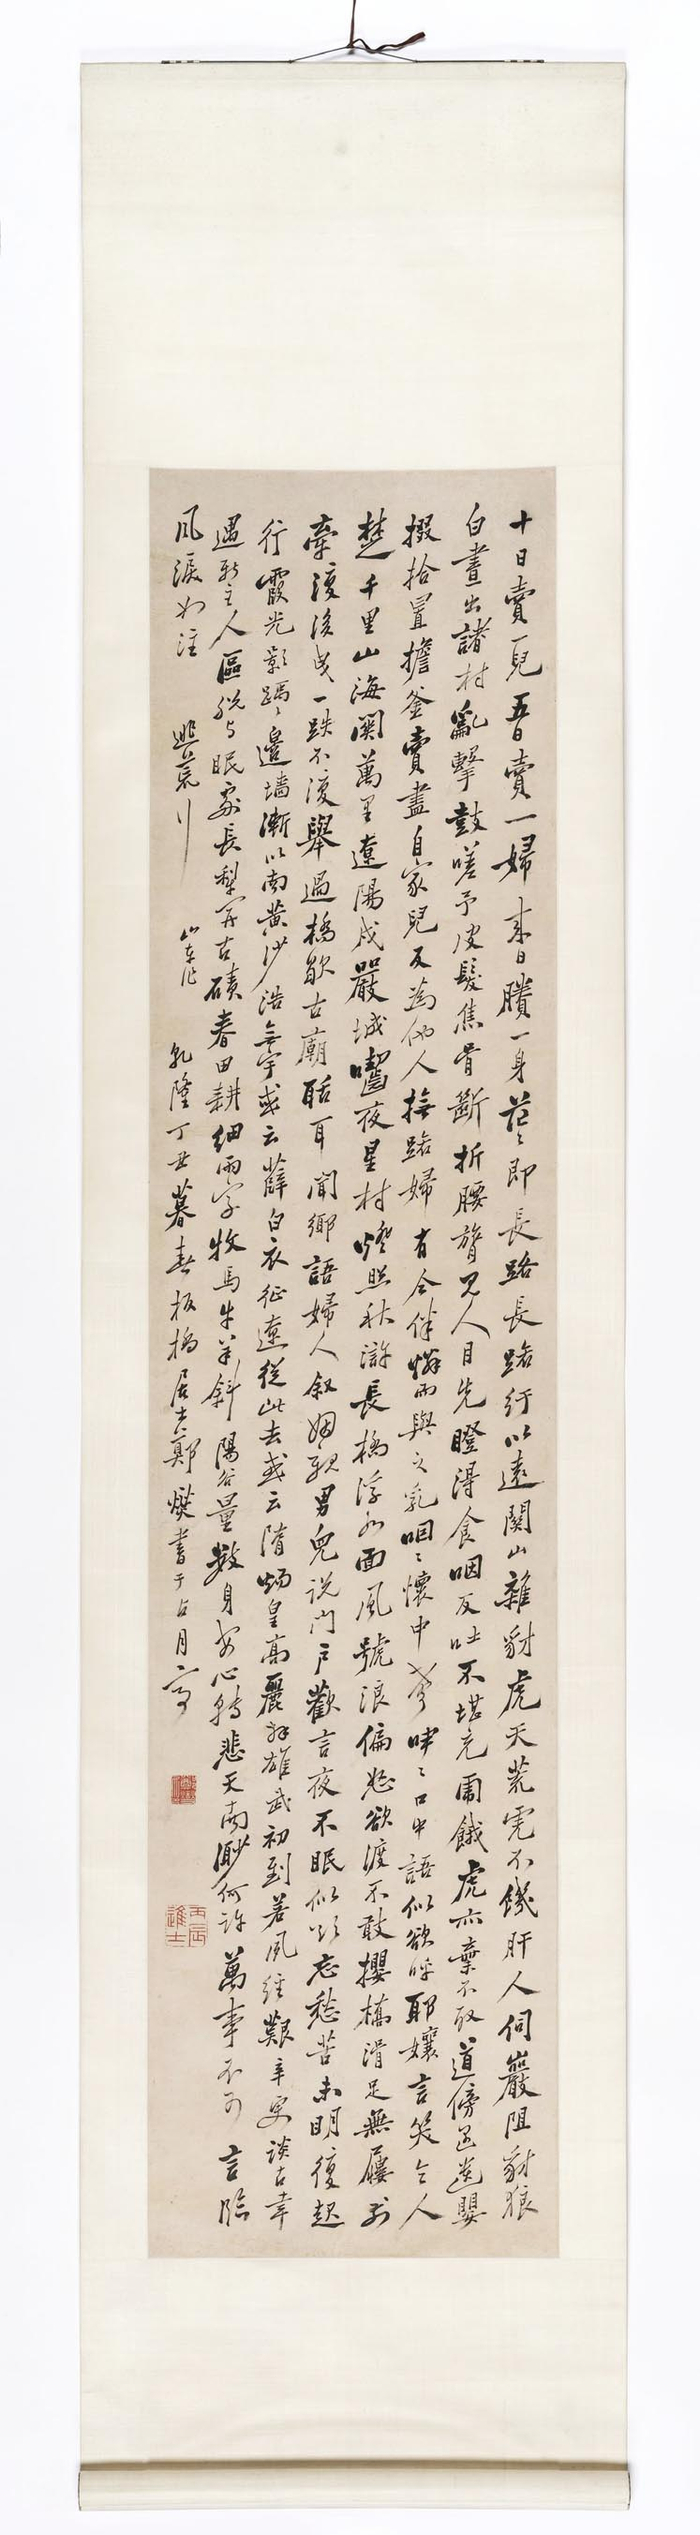 十日賣一兒五日賣一婦來日賸一身茫〻即長路長路行以遠關山雜豺虎天荒虎不饑旰人伺巖阻豺狼
白晝出諸村亂擊鼓嗟予皮髮焦骨斷折腰膂見人目先瞪得食咽反吐不堪充爾餓虎亦棄不取道傍過遺嬰
掇拾置擔釜賣盡自家兒反為他人撫路婦有令伴憐而與之乳咽〻懷中聲咿〻口中語似欲呼耶孃言笑令人
楚千里山海關萬里遼陽戍嚴城嚙夜星村燈照秋滸長橋浮水面風號浪偏怒欲渡不敢攖橋滑足無屨前
牽復後曳一跌不復舉過橋歇古廟聒耳聞鄉語婦人叙姻親男兒説門戶歡言夜不眠似欲忘愁苦未明復起
行霞光影踽〻邊墻漸以南黃沙浩無宇或云薛白衣征遼從此去或云隋煬皇高麗拜雄武初到若夙經艱辛更談古幸
遇新主人區脫與眠處長犁開古磧春田耕細雨字牧馬牛羊斜陽谷量數身安心轉悲天南渺何許萬事不可言臨
風淚如注 逃荒行 山東作 乾隆丁丑暮春板橋居士鄭燮書于占月亭
丙辰進士